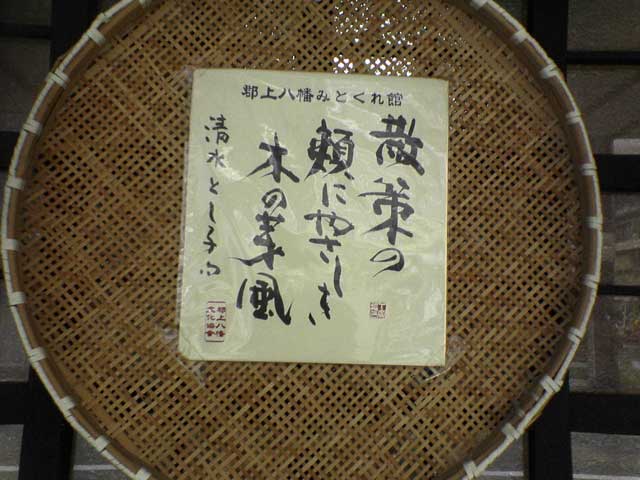 郡上八幡みとくれ館
散策の
頬にやさしき
木の芽風
清水とし子
郡上八幡
文化協會